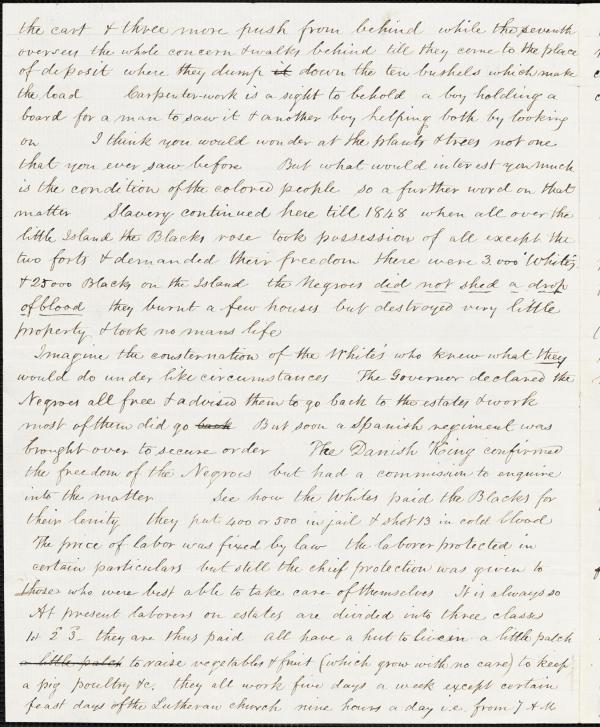 the cart & three more push from behind while the seventh
oversees the whole concern & walks behind till they come to the place
of deposit where they dump it down the ten bushels which make
the load Carpenter-work is a sight to behold a boy holding a
board for a man to saw it & another boy helping both by looking
on I think you would wonder at the plants & trees not one
that you ever saw before But what would interest you much
is the condition of the colored people so a further word on that
matter Slavery continued here till 1848 when all over the
little Island the Blacks rose took possession of all except the
two forts & demanded their freedom there were 3.000 Whites
& 25000 Blacks on the Island the Negroes did not shed a drop
of blood they burnt a few houses but destroyed very little
property & took no mans life
Imagine the consternation of the White's who knew what they
would do under like circumstances The Governor declared the
Negroes all free & advised them to go back to the estates & work
most of them did go back But soon a Spanish regiment was
brought over to secure order The Danish King confirmed
the freedom of the Negroes but had a commission to enquire
into the matter See how the Whites paid the Blacks for
their lenity they put 400 or 500 in jail & shot 13 in cold blood
The price of labor was fixed by law the laborer protected in
certain particulars but still the chief protection was given to
those who were best able to take care of themselves It is always so
At present laborers on estates are divided into three classes
1st 2 3 they are thus paid all have a hut to live in a little patch
a little patch to raise vegetables & fruit (which grow with no care) to keep
a pig poultry &c. they all work five days a week except certain
feast days of the Lutheran church nine hours a day i.e. from 7 A.M